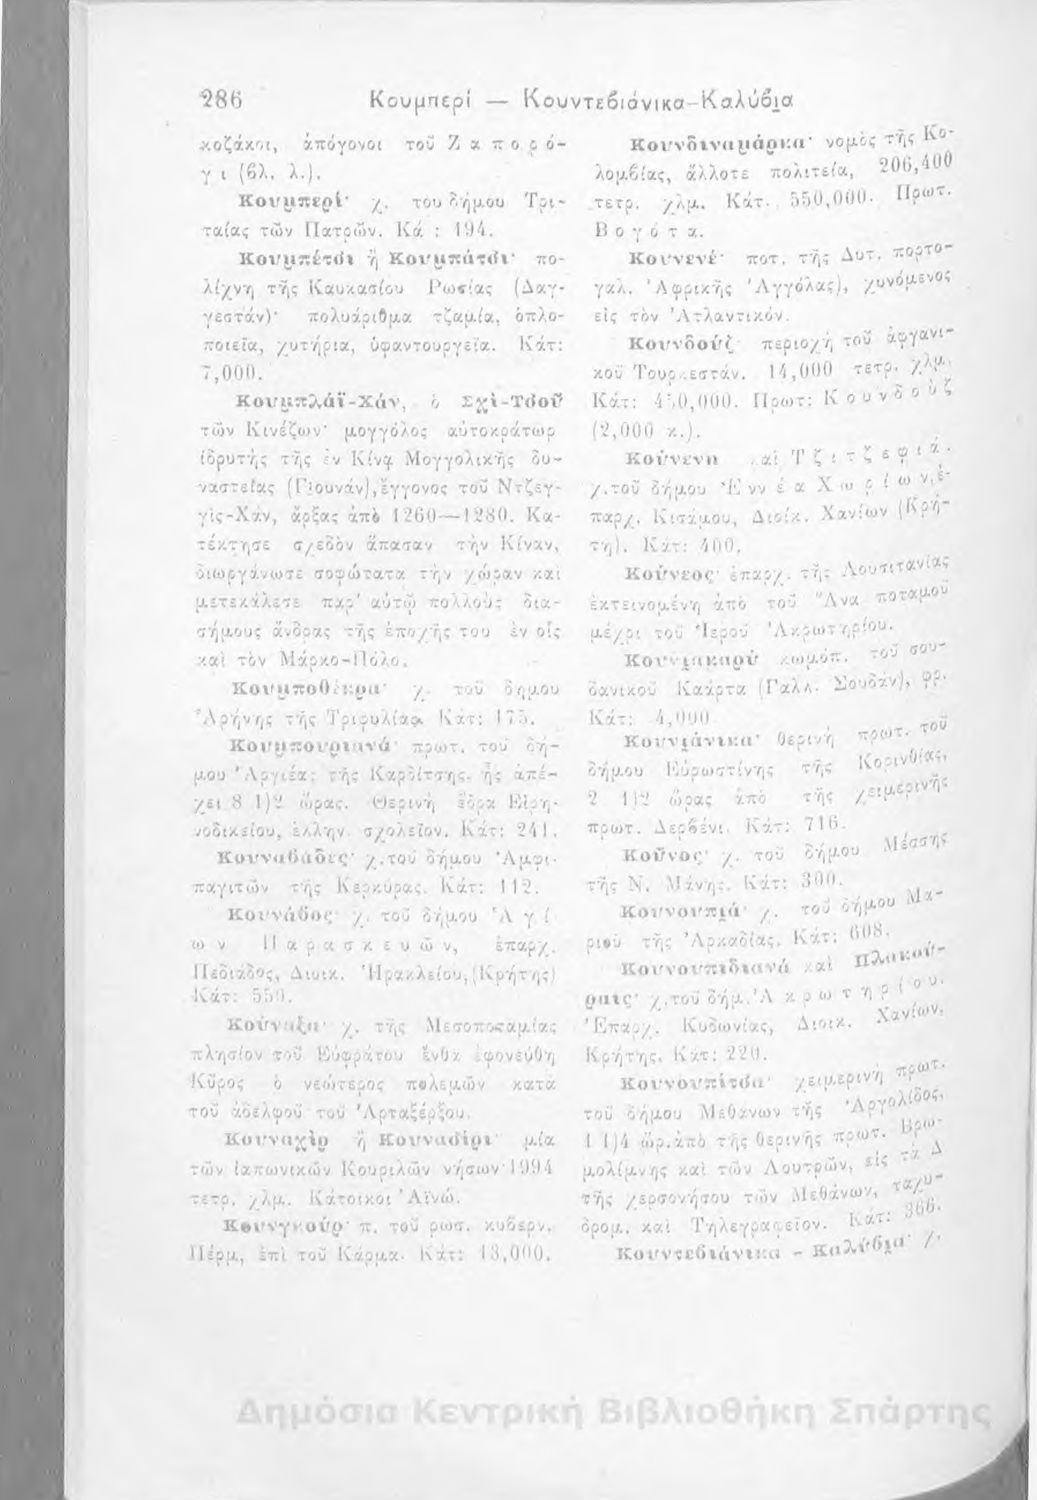 286 Κουμπερί — Κουντεβιάνικα-Καλύβια
κοζάκοι, ἀπόγονοι τοῦ Ζαπορό-
γι (βλ. λ.).
Κουμπερί· χ. του δήμου Τρι-
ταίας τῶν Πατρῶν. Κά : 194.
Κουμπέτσι ἤ Κουμπάτσι· πο-
λίχνη τῆς Καυκασίου Ρωσίας (Δαγ-
γεστάν)· πολυάριθμα τζαμία, ὁπλο-
ποιεῖα, χυτήρια, ὑφαντουργεῖα. Κάτ:
7,000.
Κουμπλάϊ-Χάν, ὁ Σχὶ-Τσοῦ
τῶν Κινέζων· μογγόλος αὐτοκράτωρ
ἱδρυτὴς τῆς ἐν Κίνᾳ Μογγολικῆς δυ-
ναστείας (Γιουνάν), ἔγγονος τοῦ Ντζεγ-
γὶς-Χάν, ἄρξας ἀπὸ 1260—1280. Κα-
τέκτησε σχεδὸν ἅπασαν τὴν Κίναν,
διωργάνωσε σοφώτατα τὴν χώραν καὶ
μετεκάλεσε παρ' αὐτῷ πολλοὺς δια-
σήμους ἄνδρας τῆς ἐποχῆς του ἐν οἷς
καὶ τὸν Μάρκο-Πόλο.
Κουμποθέκρα· χ. τοῦ δήμου
Ἀρήνης τῆς Τριφυλίας. Κάτ: 175.
Κουμπουριανά· πρωτ. τοῦ δή-
μου Ἀργιέας τῆς Καρδίτσης, ἧς ἀπέ-
χει 8 1)2 ὥρας. Θερινὴ ἕδρα Εἰρη-
νοδικείου, ἑλλην. σχολεῖον. Κάτ: 241.
Κουναβάδες· χ. τοῦ δήμου Ἀμφι-
παγιτῶν τῆς Κερκύρας. Κάτ: 112.
Κουνάβος· χ. τοῦ δήμου Ἁγί-
ων Παρασκευῶν, ἐπαρχ.
Πεδιάδος, Διοικ. Ἡρακλείου, (Κρήτης)
Κάτ: 550.
Κούναξα· χ. τῆς Μεσοποταμίας
πλησίον τοῦ Εὐφράτου ἔνθα ἐφονεύθη
Κῦρος ὁ νεώτερος πολεμῶν κατὰ
τοῦ ἀδελφοῦ του Ἀρταξέρξου.
Κουναχὶρ ἢ Κουνασίρι· μία
τῶν ἰαπωνικῶν Κουριλῶν νήσων· 1994
τετρ. χλμ. Κάτοικοι Ἀϊνώ.
Κουνγκούρ· π. τοῦ ρωσ. κυβερν.
Πέρμ, ἐπὶ τοῦ Κάρμα. Κάτ: 13,000.
Κουνδιναμάρκα· νομὸς τῆς Κο-
λομβίας, ἄλλοτε πολιτεία, 206,400
τετρ. χλμ. Κάτ. 550,000. Πρωτ.
Βογότα.
Κουνενέ· ποτ. τῆς Δυτ. πορτο-
γαλ. Ἀφρικῆς Ἀγγόλας), χυνόμενος
εἰς τὸν Ἀτλαντικόν.
Κουνδούζ· περιοχὴ τοῦ ἀφγανι-
κοῦ Τουρκεστάν. 14,000 τετρ. χλμ.
Κάτ: 450,000. Πρωτ: Κουνδοὺζ
(2,000 κ.).
Κούνενη καὶ Τζιτζεφιά·
χ. τοῦ δήμου Ἐννέα Χωρίων, ἐ-
παρχ. Κισάμου, Διοίκ. Χανίων (Κρή-
τη). Κάτ: 400.
Κούνεος· ἐπαρχ. τῆς Λουσιτανίας
ἐκτεινομένη ἀπὸ τοῦ Ἄνα ποταμοῦ
μέχρι τοῦ Ἱεροῦ Ἀκρωτηρίου.
Κουνιακαρύ· κωμόπ. τοῦ σου-
δανικοῦ Καάρτα (Γαλλ. Σουδάν), φρ.
Κάτ: 4,000
Κουνιάνικα· θερινὴ πρωτ. τοῦ
δήμου Εὐρωστίνης τῆς Κορινθίας,
2 1)2 ὥρας ἀπὸ τῆς χειμερινῆς
πρωτ. Δερβένι. Κάτ: 716.
Κοῦνος· χ. τοῦ δήμου Μέσσης
τῆς Ν. Μάνης. Κάτ: 300.
Κουνουπιά· χ. τοῦ δήμου Μα-
ριοῦ τῆς Ἀρκαδίας. Κάτ: 608.
Κουνουπιδιανὰ καὶ Πλακού-
ραις· χ. τοῦ δήμ. Ἀκρωτηρίου.
Ἐπαρχ. Κυδωνίας, Διοικ. Χανίων,
Κρήτης. Κάτ: 220.
Κουνουπίτσα· χειμερινὴ πρωτ.
τοῦ δήμου Μεθάνων τῆς Ἀργολίδος,
1 1)4 ὥρ. ἀπὸ τῆς θερινῆς πρωτ. Βρω-
μολίμνης καὶ τῶν Λουτρῶν, εἰς τὰ Δ
τῆς χερσονήσου τῶν Μεθάνων, ταχυ-
δρομ. καὶ Τηλεγραφεῖον. Κάτ: 366.
Κουντεβιάνικα - Καλύβια· χ.
Δημόσια Κεντρική Βιβλιοθήκη Σπάρτης